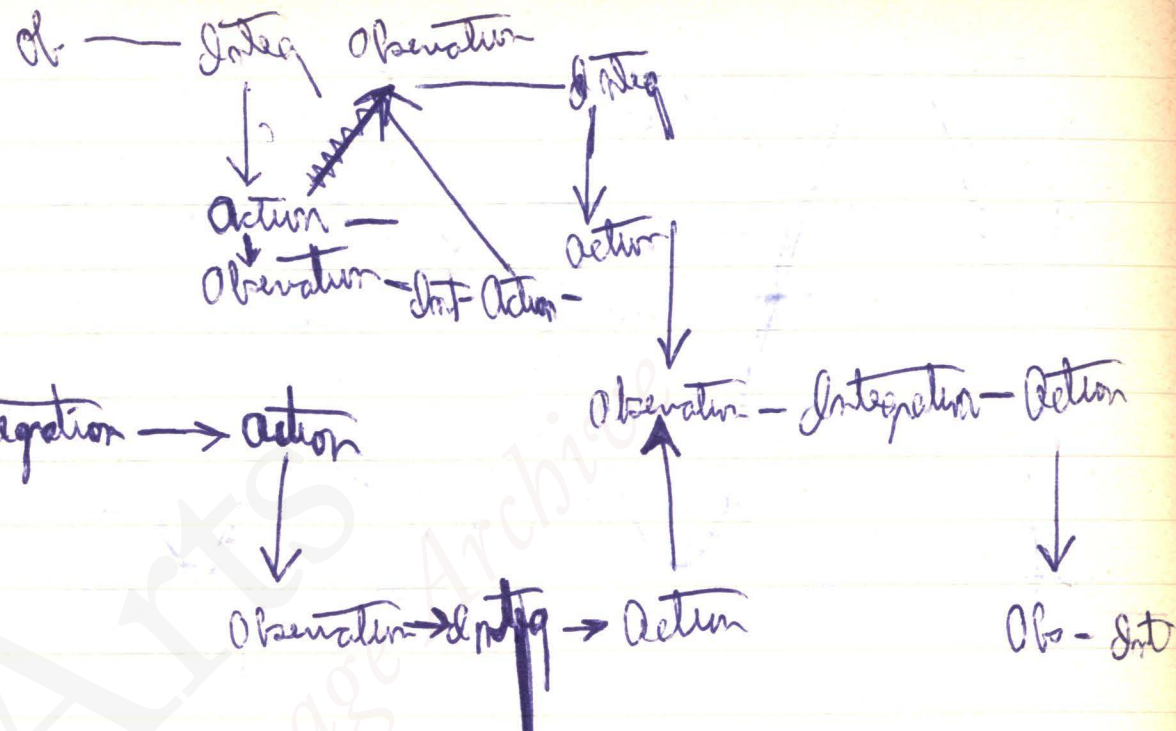 Ob — Integ Observation
Integ
Action —
Action
Observation - Int - Action -
Observation - Integration - Action
egration → Action
Observation → Integ → Action
Obs - Int
Arts
age Archive